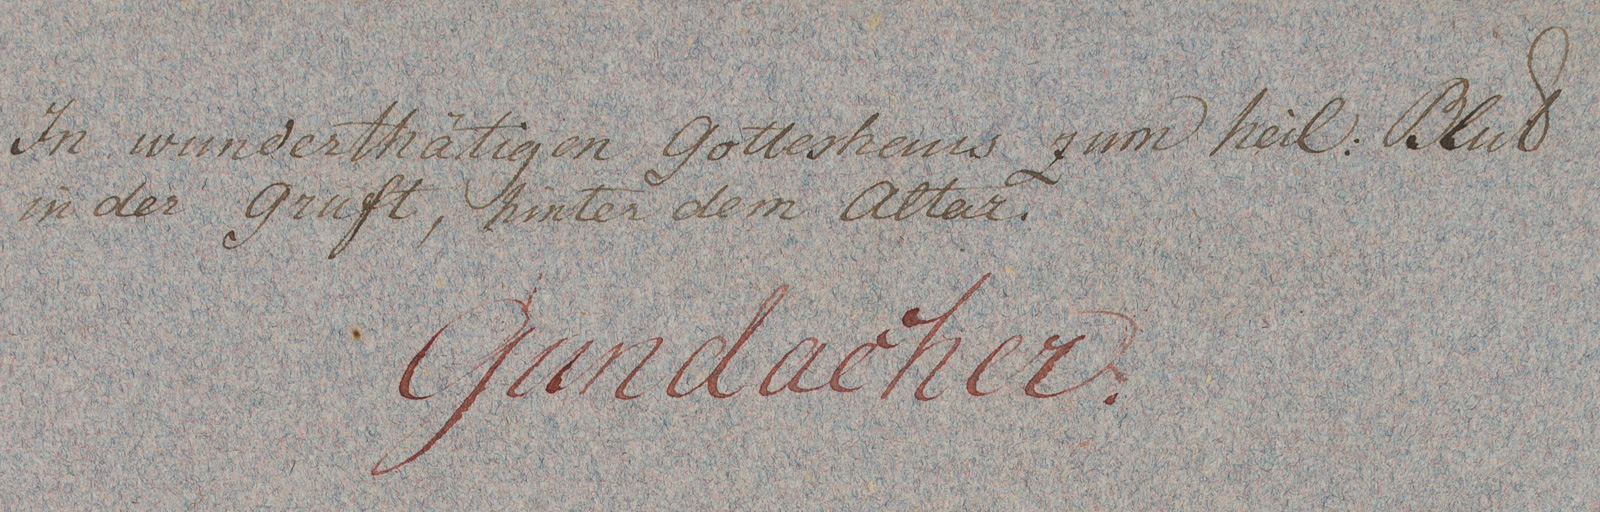 In wunderthätigen Gotteshaus zum heil: Blut
in der Gruft, hinter dem Altar.
Gundacher.